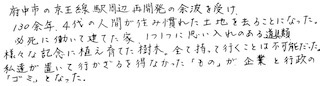 府中市の京王線駅周辺再開発の余波を受け、
130余年、4代の人間が住み慣れた土地を去ることになった。
必死に働いて建てた家、1つ1つに思い入れのある道具類
様々な記念に植え育てた樹木。全て持って行くことは不可能だった。
私達が置いて行かざるを得なかった「もの」が企業と行政の
「ゴミ」となった。